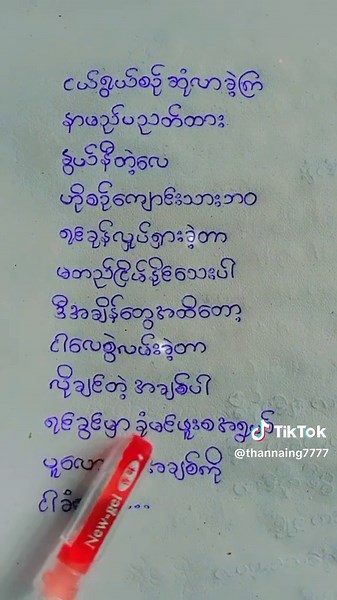 ငယ်ရွယ်စဉ် ဆုံလာခဲ့ကြ
နာမည်ပညတ်ထား
ဒွိဟိနီတဲ့လေ
ဟိုစဉ်ကျောင်းသားဘဝ
ရင်ခုန်လှုပ်ရှားခဲ့တာ
မတည်ငြိမ်နိုင်သေးပါ
ဒီအချိန်တွေအထိတော့
ငါလေစွဲလမ်းခဲ့တာ
လိုချင်တဲ့ အချစ်ပါ
ရင်ခွင်မှာ ခုံမင်ဖူးစ အရွယ်
ပူလော အချစ်ကို
ငါခံ ...
TikTok
@thannaing7777
New-gel